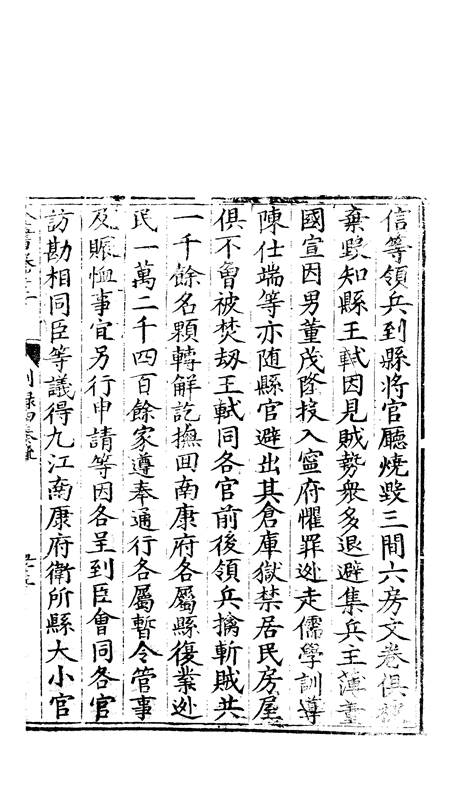 信等領兵到縣將官廳燒毀三間六房文卷俱被
棄毀知縣王軾因見賊勢衆多退避集兵主薄董
國宣因男董茂隆投入寧府懼罪逃走儒學訓導
陳仕端等亦随縣官避出其倉庫獄禁居民房屋
俱不曾被焚刼王軾同各官前後領兵擒斬賊共
一千餘名顆轉解訖撫回南康府各屬縣復業逃
民一萬二千四百餘家遵奉通行各屬暫令管事
及賑恤事宜另行申請等因各呈到臣會同各官
訪勘相同臣等議得九江南康府衛所縣大小官
全書卷之十二
别録四奏疏